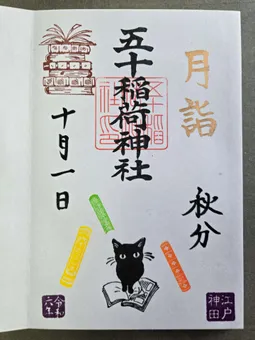 月詣
秋分
五十稲荷神社
十月一日
江戸
神田
令和
六年